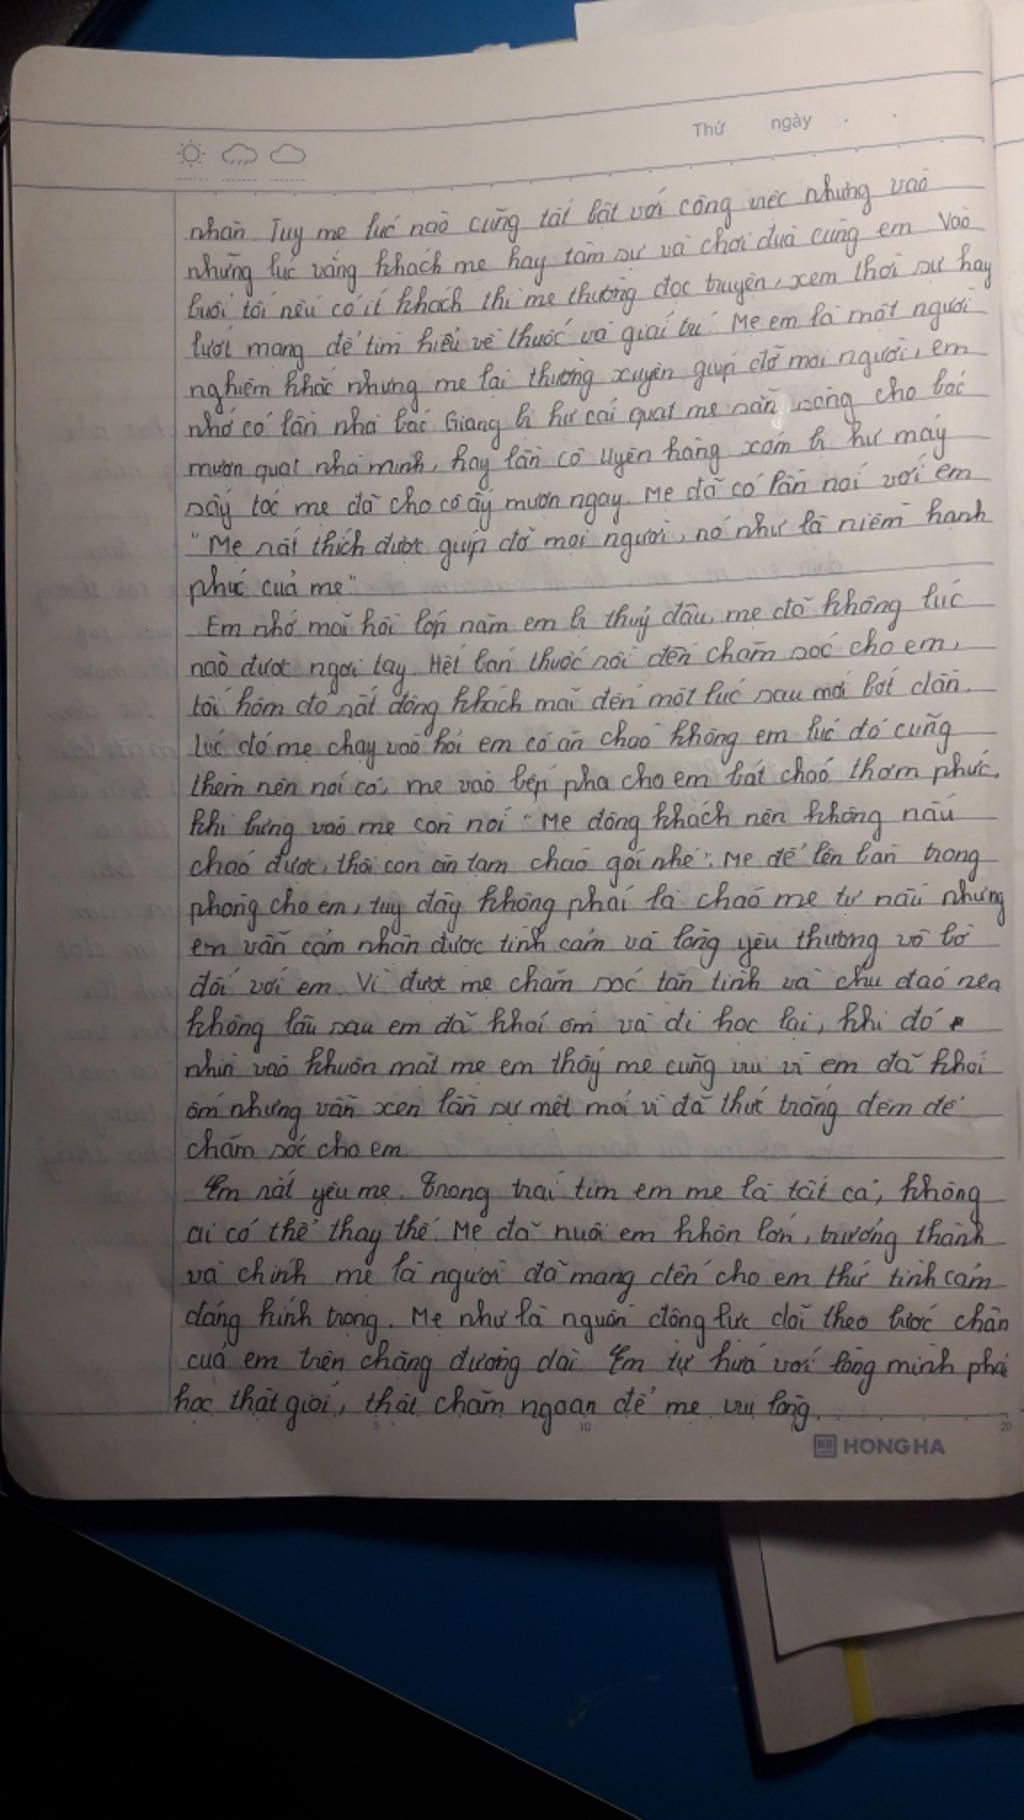 Thứ ngày
nhân. Tuy mẹ lúc nào cũng tất bật với công việc nhưng vào
những lúc vắng khách mẹ hay tâm sự và chơi đùa cùng em. Vào
buổi tối nếu có ít khách thì mẹ thường đọc truyện, xem thời sự hay
lướt mạng để tìm hiểu về thuốc và giải trí. Mẹ em là một người
nghiêm khắc nhưng mẹ lại thường xuyên giúp đỡ mọi người, em
nhớ có lần nhà bác Giang bị hư cái quạt mẹ sẵn sàng cho bác
mượn quạt nhà mình, hay lần cô Uyên hàng xóm bị hư máy
sấy tóc mẹ đã cho cô ấy mượn ngay. Mẹ đã có lần nói với em
"Mẹ rất thích được giúp đỡ mọi người, nó như là niềm hạnh
phúc của mẹ"
Em nhớ mãi hồi lớp năm em bị thuỷ đậu, mẹ đã không lúc
nào được ngơi tay. Hết bán thuốc rồi đến chăm sóc cho em,
tối hôm đó rất đông khách mãi đến một lúc sau mới bớt dần.
Lúc đó mẹ chạy vào hỏi em có ăn cháo không em lúc đó cũng
thèm nên nói có, mẹ vào bếp pha cho em bát cháo thơm phức.
Khi bưng vào mẹ còn nói "Mẹ đông khách nên không nấu
cháo được, thôi con ăn tạm cháo gói nhé". Mẹ để lên bàn trong
phòng cho em, tuy đây không phải là cháo mẹ tự nấu nhưng
em vẫn cảm nhận được tình cảm và lòng yêu thương vô bờ
đối với em. Vì được mẹ chăm sóc tận tình và chu đáo nên
không lâu sau em đã khỏi ốm và đi học lại, khi đó
nhìn vào khuôn mặt mẹ em thấy mẹ cũng vui vì em đã khỏi
ốm nhưng vẫn xen lẫn sự mệt mỏi vì đã thức trắng đêm để
chăm sóc cho em.
Em rất yêu mẹ. Trong trái tim em mẹ là tất cả, không
ai có thể thay thế. Mẹ đã nuôi em khôn lớn, trưởng thành
và chính mẹ là người đã mang đến cho em thứ tình cảm
đáng kính trọng. Mẹ như là nguồn động lực dõi theo bước chân
của em trên chặng đường dài. Em tự hứa với lòng mình phải
học thật giỏi, thật chăm ngoan để mẹ vui lòng.
5 10 20
HONG HA